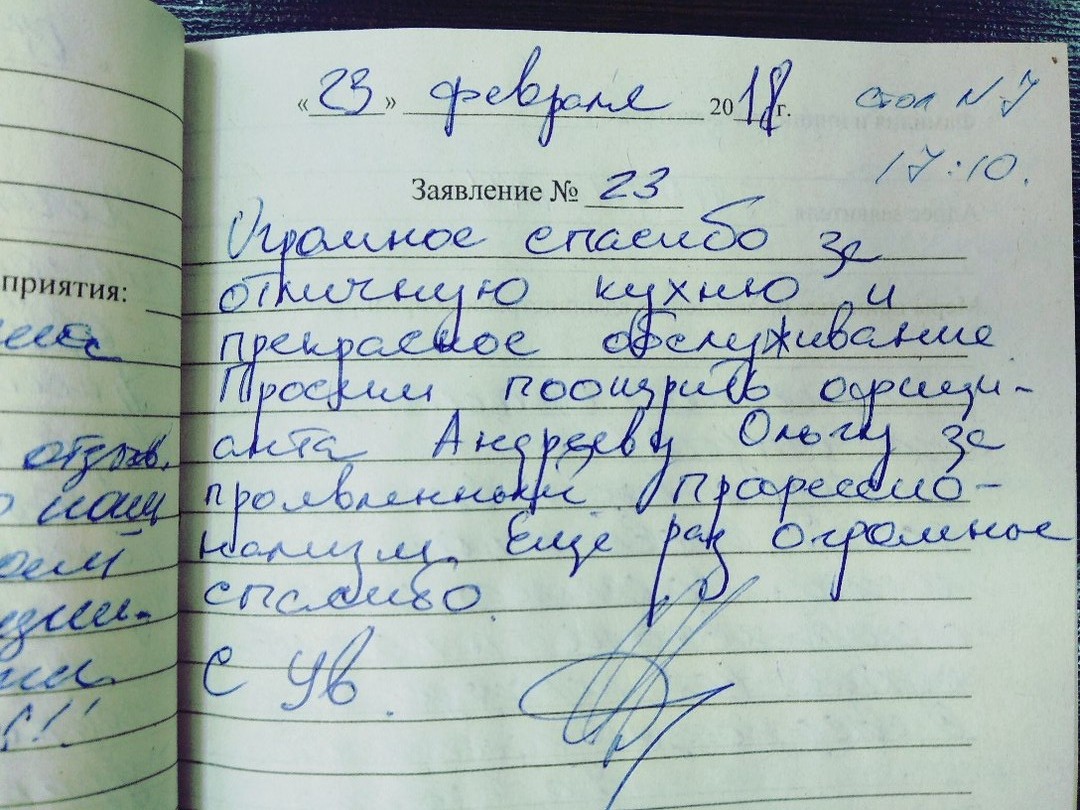 «23» февраля 2018 г.
стол N 7
17:10.
Заявление № 23
Огромное спасибо за
отличную кухню и
прекрасное обслуживание.
Просим поощрить офици-
анта Андрееву Ольгу за
проявленный профессио-
нализм. Еще раз огромное
спасибо.
С Ув.
приятия:
отзыв.